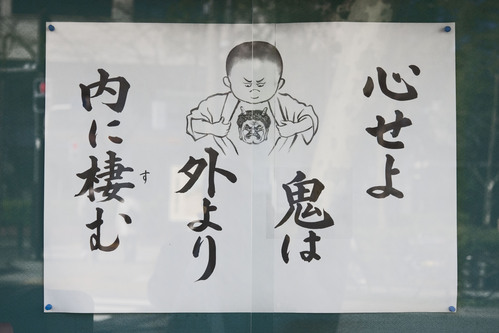 心せよ
鬼は
外より
内に棲む
す